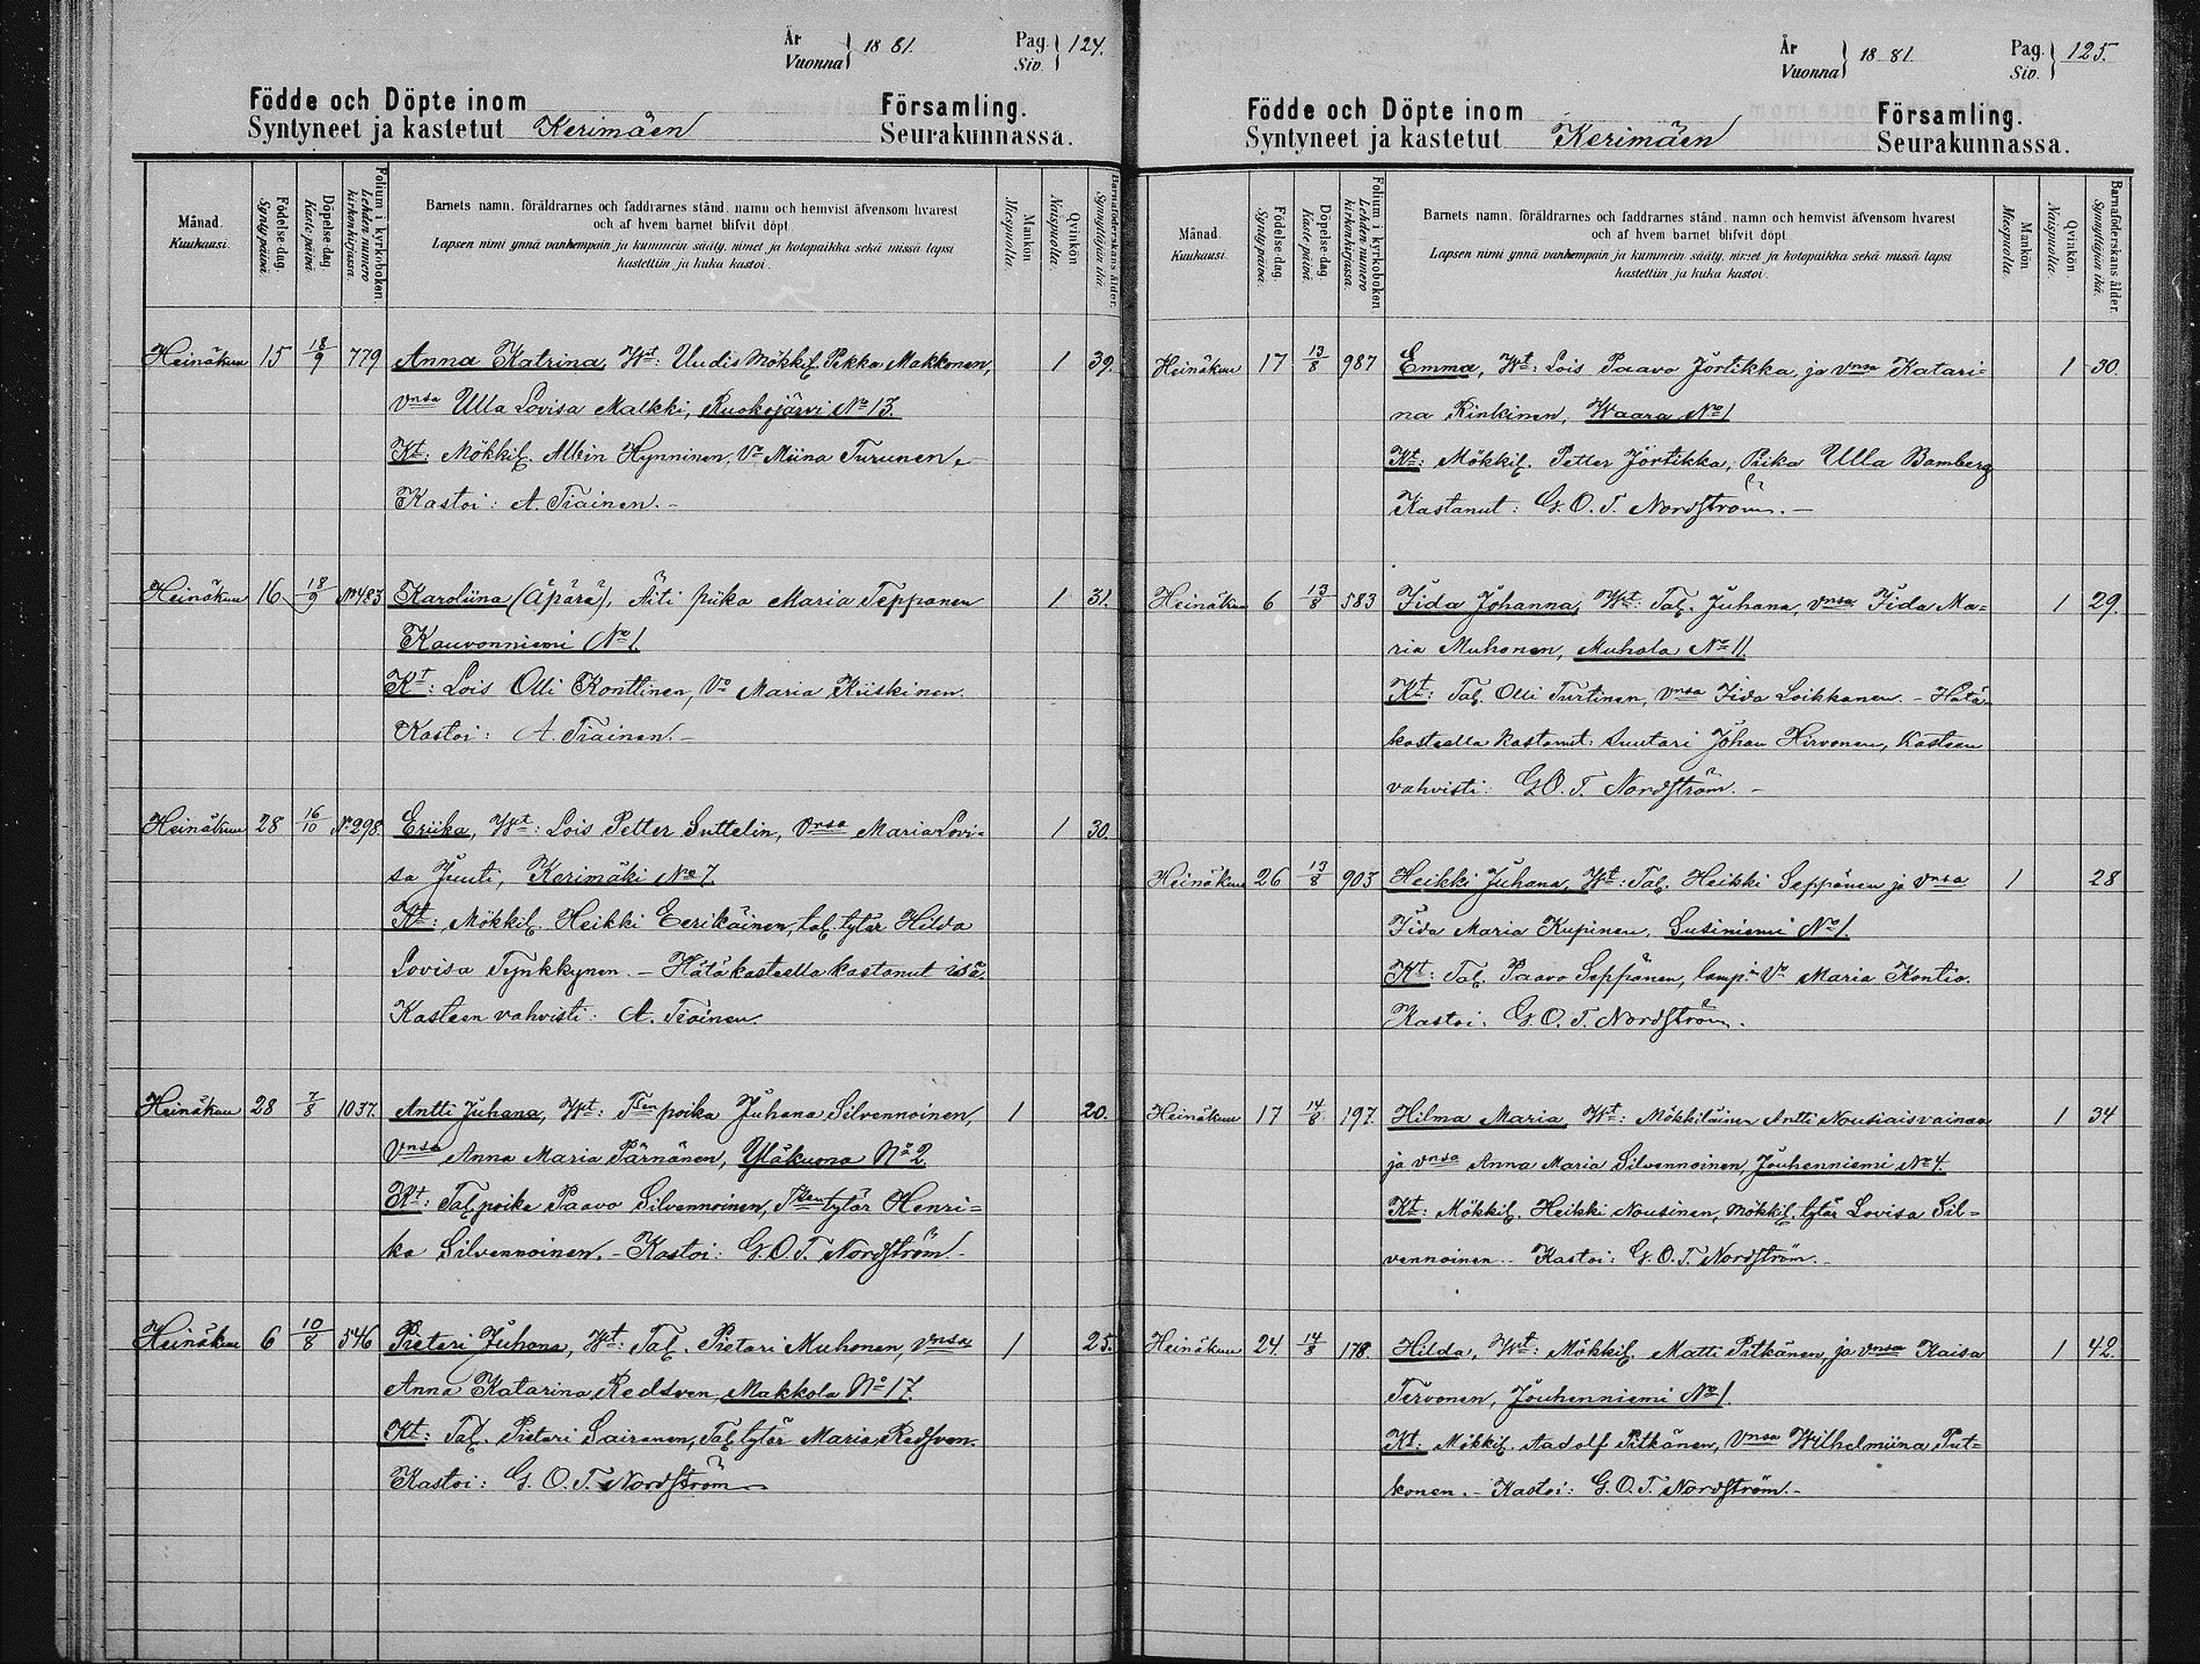 År
Vuonna 1881.
Pag.
Siv. 124.
Födde och Döpte inom Församling.
Syntyneet ja kastetut Kerimäen Seurakunnassa.
Månad.
Kuukausi.
Födelse-dag.
Synty-päivä.
Döpelse-dag
Kaste-päivä.
Folium i kyrkoboken.
Lehden numero
kirkonkirjassa.
Barnets namn, föräldrarnes och faddrarnes stånd, namn och hemvist äfvensom hvarest
och af hvem barnet blifvit döpt.
Lapsen nimi ynnä vanhempain ja kummein sääty, nimet ja kotopaikka sekä missä lapsi
kastettiin ja kuka kastoi.
Mankön
Miespuolia.
Qvinkön
Naispuolia.
Barnaföderskans ålder.
Synnyttäjän ikä.
Heinäkuu 15 18/9 779 Anna Katrina, Wt: Uudis Mökkil. Pekka Makkonen, 1 39.
Vnsa Ulla Lovisa Malkki, Ruokojärvi No 13.
Kt: Mökkil. Albin Hynninen, Vo Miina Turunen.
Kastoi: A. Tiainen. –
Heinäkuu 16 18/9 No 483 Karoliina (Äpärä), Äiti piika Maria Tepponen 1 31.
Kauvonniemi No 1.
Kt: Lois Olli Konttinen, Vo Maria Kiiskinen.
Kastoi: A. Tiainen. –
Heinäkuu 28 16/10 No 298. Eriika, Wt: Lois Petter Suttelin, Vnsa Maria Lovi- 1 30.
sa Juuti, Kerimäki No 7.
Kt: Mökkil. Heikki Eerikäinen, tal. tytär Hilda
Lovisa Tynkkynen. – Hätäkasteella kastanut isä.
Kasteen vahvisti: A. Tiainen.
Heinäkuu 28 7/8 1037. Antti Juhana, Wt: Tsen poika Juhana Silvennoinen, 1 20.
Vnsa Anna Maria Pärnänen, Yläkuona No 2.
Kt: Tal. poika Paavo Silvennoinen, Tsen tytär Henri-
ka Silvennoinen. – Kastoi: G. O. T. Nordström. –
Heinäkuu 6 10/8 546 Pietari Juhana, Wt: Tal. Pietari Muhonen, Vnsa 1 25.
Anna Katarina Redsven, Makkola No 17.
Kt: Tal. Pietari Sairanen, Tal. tytär Maria Redsven.
Kastoi: G. O. T. Nordström
År
Vuonna 1881.
Pag.
Siv. 125.
Födde och Döpte inom Församling.
Syntyneet ja kastetut Kerimäen Seurakunnassa.
Månad.
Kuukausi.
Födelse-dag.
Synty-päivä.
Döpelse-dag.
Kaste-päivä.
Folium i kyrkoboken
Lehden numero
kirkonkirjassa.
Barnets namn, föräldrarnes och faddrarnes stånd, namn och hemvist äfvensom hvarest
och af hvem barnet blifvit döpt.
Lapsen nimi ynnä vanhempain ja kummein sääty, nimet ja kotopaikka sekä missä lapsi
kastettiin ja kuka kastoi.
Mankön
Miespuolia.
Qvinkön.
Naispuolia.
Barnaföderskans ålder.
Synnyttäjän ikä.
Heinäkuu 17 13/8 987 Emma, Wt: Lois Paavo Jortikka, ja Vnsa Katari- 1 30.
na Rinkinen, Waara No 1
Kt: Mökkil. Petter Jortikka, Piika Ulla Bamberg
Kastanut: G. O. T. Nordström. –
Heinäkuu 6 13/8 583 Iida Johanna, Wt: Tal. Juhana, Vnsa Iida Ma- 1 29.
ria Muhonen, Muhola No 11.
Kt: Tal. Olli Turtinen, Vnsa Iida Loikkanen. – Hätä-
kasteella kastanut: Suutari Johan Hirvonen, Kasteen
vahvisti: G. O. T. Nordström. –
Heinäkuu 26 13/8 903 Heikki Juhana, Wt: Tal. Heikki Seppänen ja Vnsa 1 28
Iida Maria Kupinen, Susiniemi No 1.
Kt: Tal. Paavo Seppänen, Vo Maria Kontio.
Kastoi: G. O. T. Nordström.
Heinäkuu 17 14/8 197. Hilma Maria, Wt: Mökkiläinen Antti Nousiaisvainaa 1 34
ja Vnsa Anna Maria Silvennoinen, Jouhenniemi No 4.
Kt: Mökkil. Heikki Nousinen, Mökkil. tytär Lovisa Sil-
vennoinen. – Kastoi: G. O. T. Nordström. –
Heinäkuu 24. 14/8 178. Hilda, Wt: Mökkil. Matti Pitkänen, ja Vnsa Kaisa 1 42.
Tervonen, Jouhenniemi No 1.
Kt: Mökkil. Aadolf Pitkänen, Vnsa Wilhelmiina Put-
konen. – Kastoi: G. O. T. Nordström. –